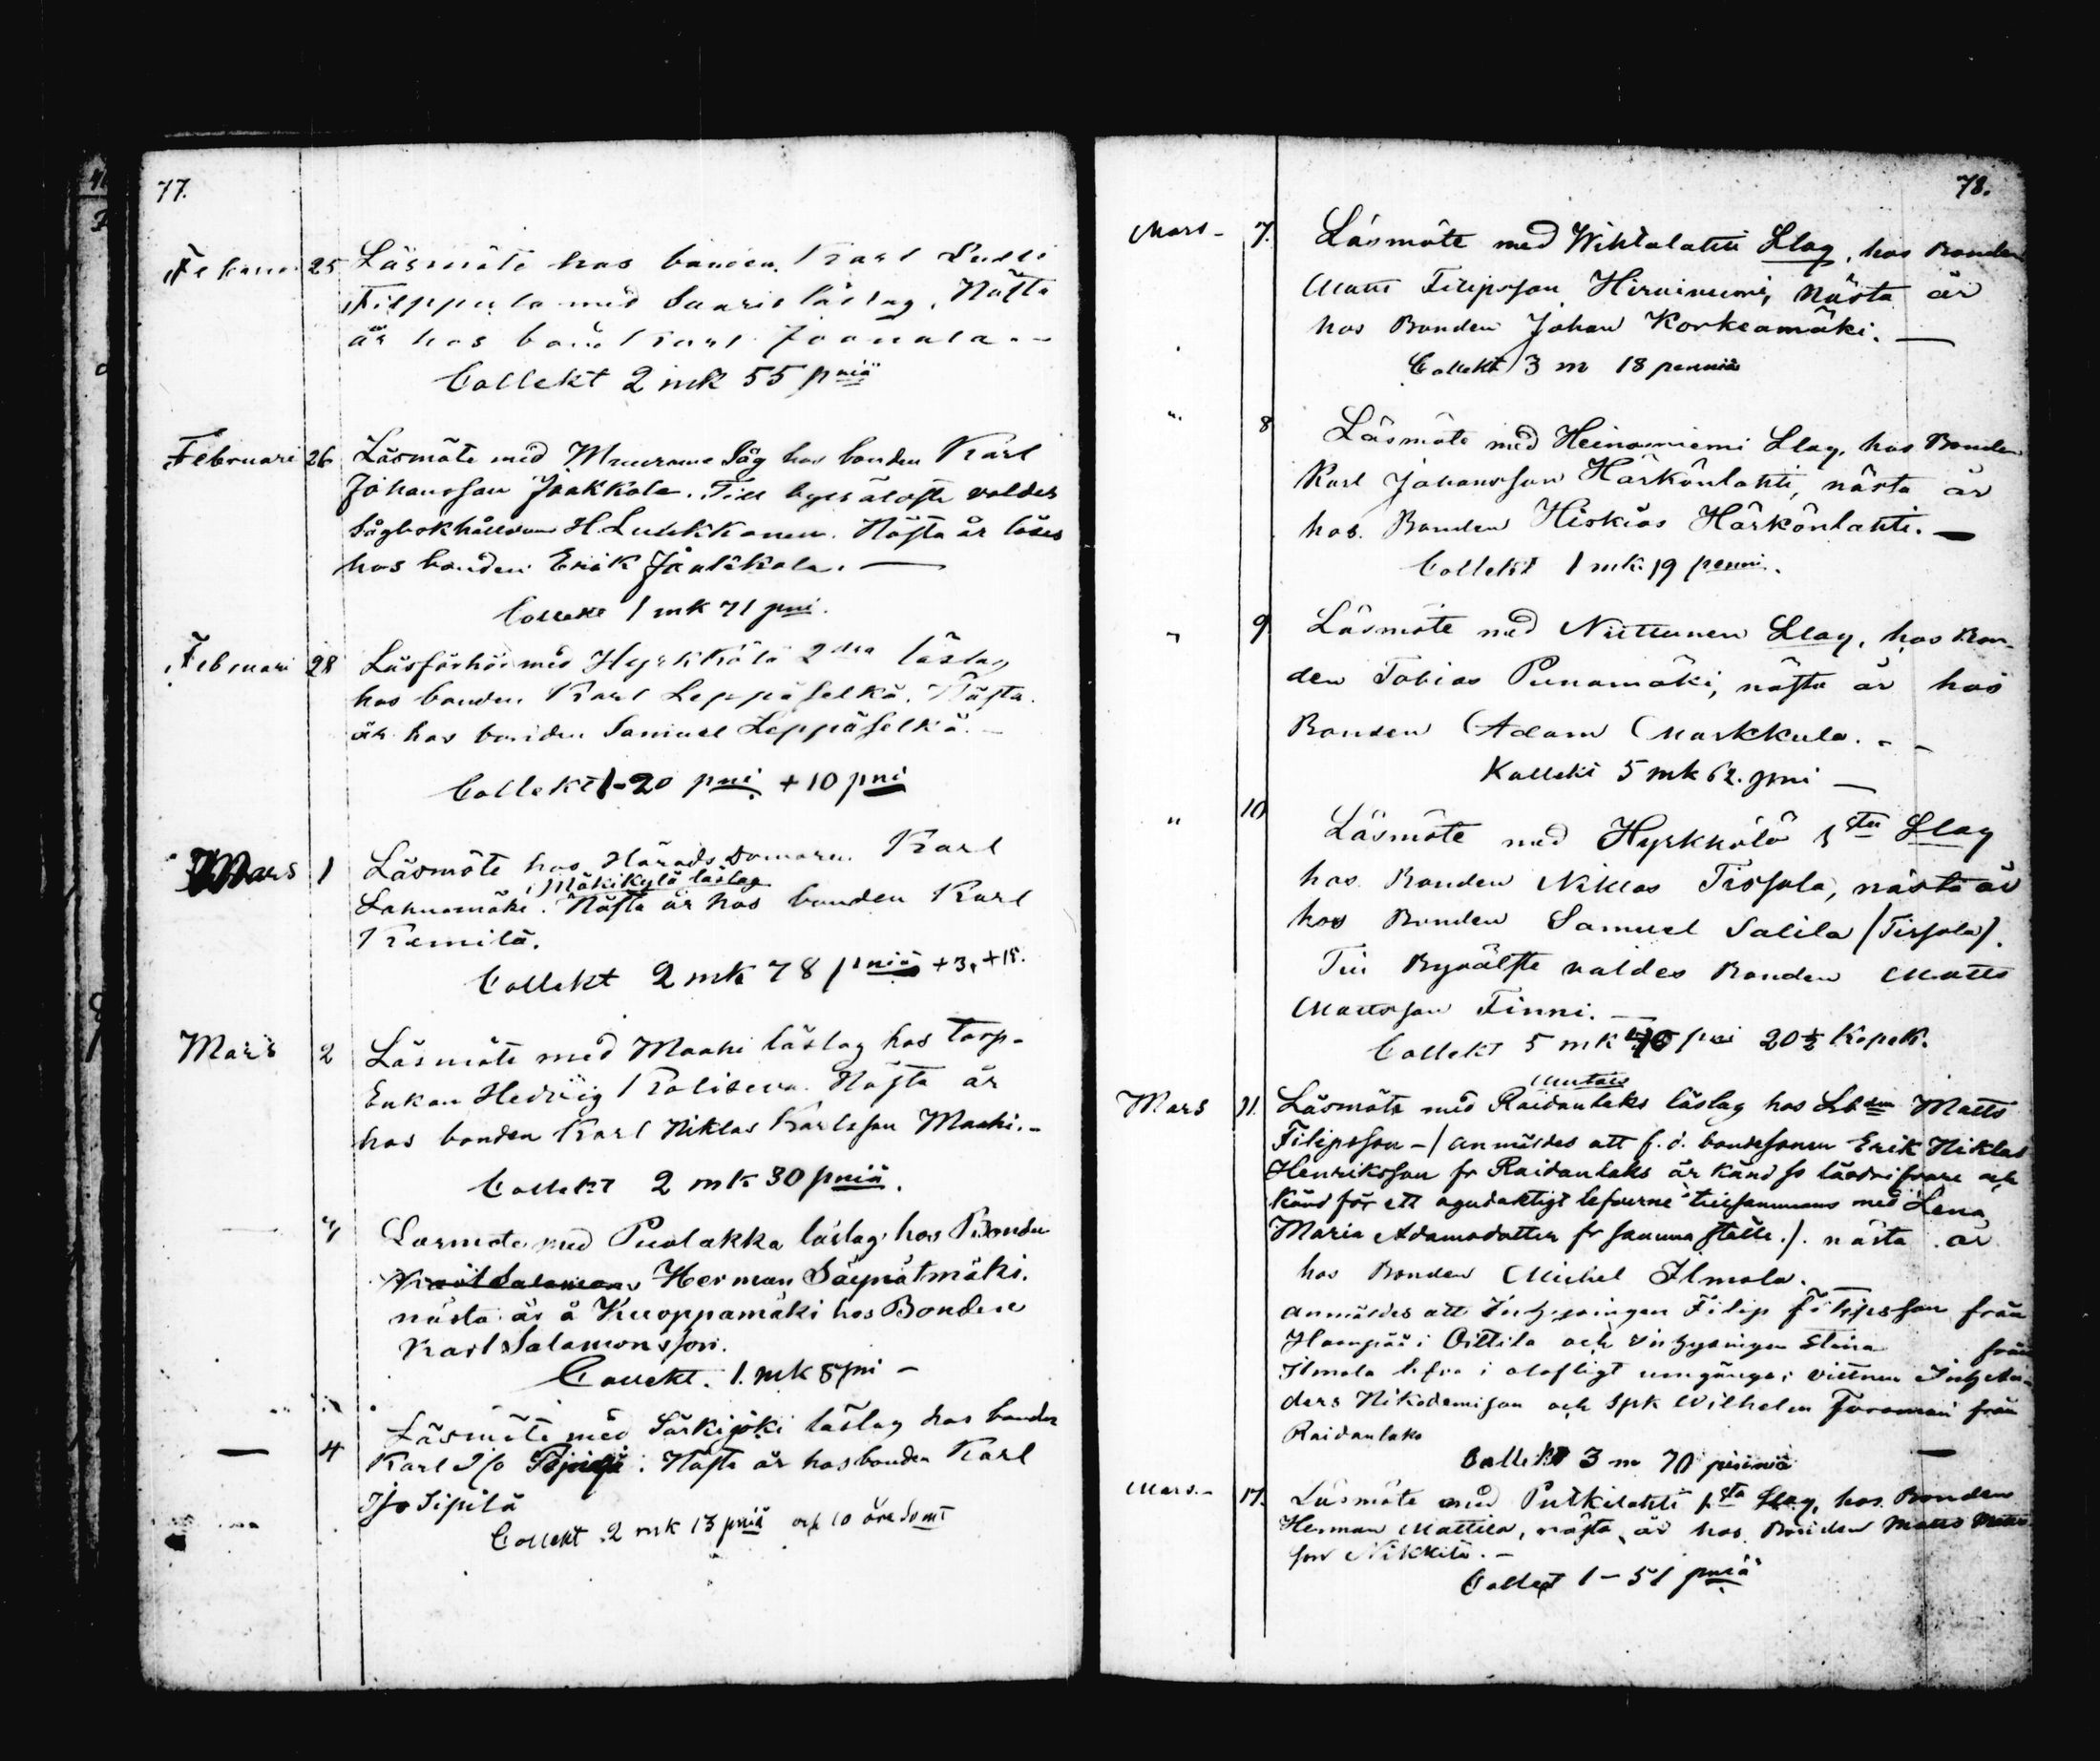 77.
Februari 25 Läsmöte hos bonden Karl
Filppula med Saaris läslag. Nästa
år hos bond Karl Jaanala. -
Collekt 2 mk 55 pniä
Februari 26 Läsmöte med Muurame Såg hos bonden Karl
Johansson Jaakkola. Till byeäldste valdes
Sågbokhållaren H. Nästa år läses
hos bonden Erik Jaakkola. —
Collekt 1 mk 71 pni.
Februari 28 Läsförhör med Hyrkkölä 2dra läslag
hos bonden Karl Leppäselkä. Nästa
år hos bonden Samuel Leppäselkä. -
Collekt 1-20 pni + 10 pni
Mars 1 Läsmöte hos Härads Domaren Karl
i Mäkikylä läslag
Lahnomäki. Nästa år hos bonden Karl
Kemilä.
Collekt 2 mk 78 pniä + 3, + 15.
Mars 2 Läsmöte med Maahi läslag hos torp-
Enkan Hedvig. Nästa år
hos bonden Karl Niklas Karlsson Maahi. -
Collekt 2 mk 30 pniä.
— Läsmöte med Puolakka läslag hos Bonden
Herman Säynätmäki.
nästa år å Kuoppamäki hos Bonden
Karl Salomonsson.
Collekt. 1. mk 8 pni -
— 4 Läsmöte med Särkijoki läslag hos bonden
Karl J/o. Nästa år hos bonden Karl
J/o Sipilä
Collekt 2 mk 13 pniä och 10 öre
78.
Mars - 7. Läsmöte med Wihtalahti Llag, hos Bonden
Matts Filipsson Hirviniemi, Nästa år
hos Bonden Johan Korkeamäki. —
Collekt 3 m 18 penniä
" 8 Läsmöte med Heinosniemi Llag, hos Bonden
Karl Johansson Härkönlahti, nästa år
hos. Bonden Hiskias Härkönlahti. —
Collekt 1 mk 19 penni.
" 9 Läsmöte med Niittunen Llag, hos Bon-
den Tobias Punamäki, nästa år hos
Bonden Adam Markkula. - -
Kollekt 5 mk 62. pni —
" 10 Läsmöte med Hyrkkölä 1sta Llag
hos Bonden Niklas Tissala, nästa år
hos Bonden Samuel Salila /Tissala/.
Till Byeälste valdes Bonden Matts
Mattsson Finni. —
Collekt 5 mk pni 20 ½ Kopek.
Mars 11. Läsmöte med Raidanlaks läslag hos Matts
Filipsson - / anmäldes att f. d. bondesonen Erik Niklas
Henriksson fr Raidanlaks är känd ss lönndrifvare och
känd för ett ogudaktigt lefverne tillsammans med Lena
Maria Adamsdotter fr samma ställe ./. nästa år
hos Bonden Michel Ilmola. —
anmäldes att Inhysingen Filip Filipsson från
Haanpää i Oittila och inhysingen Stina från
Ilmola lefva i olofligt umgänge; vittnen
ders Nikodemison och Spk Wilhelm från
Raidanlaks
Collekt 3 m 70 penniä —
Mars. - 17. Läsmöte med Putkilahti 1sta Llag, hos Bonden
Herman Mattila, nästa år hos. Bonden Matts Matts
son Nikkilä. -
Collekt 1 - 51 pniä